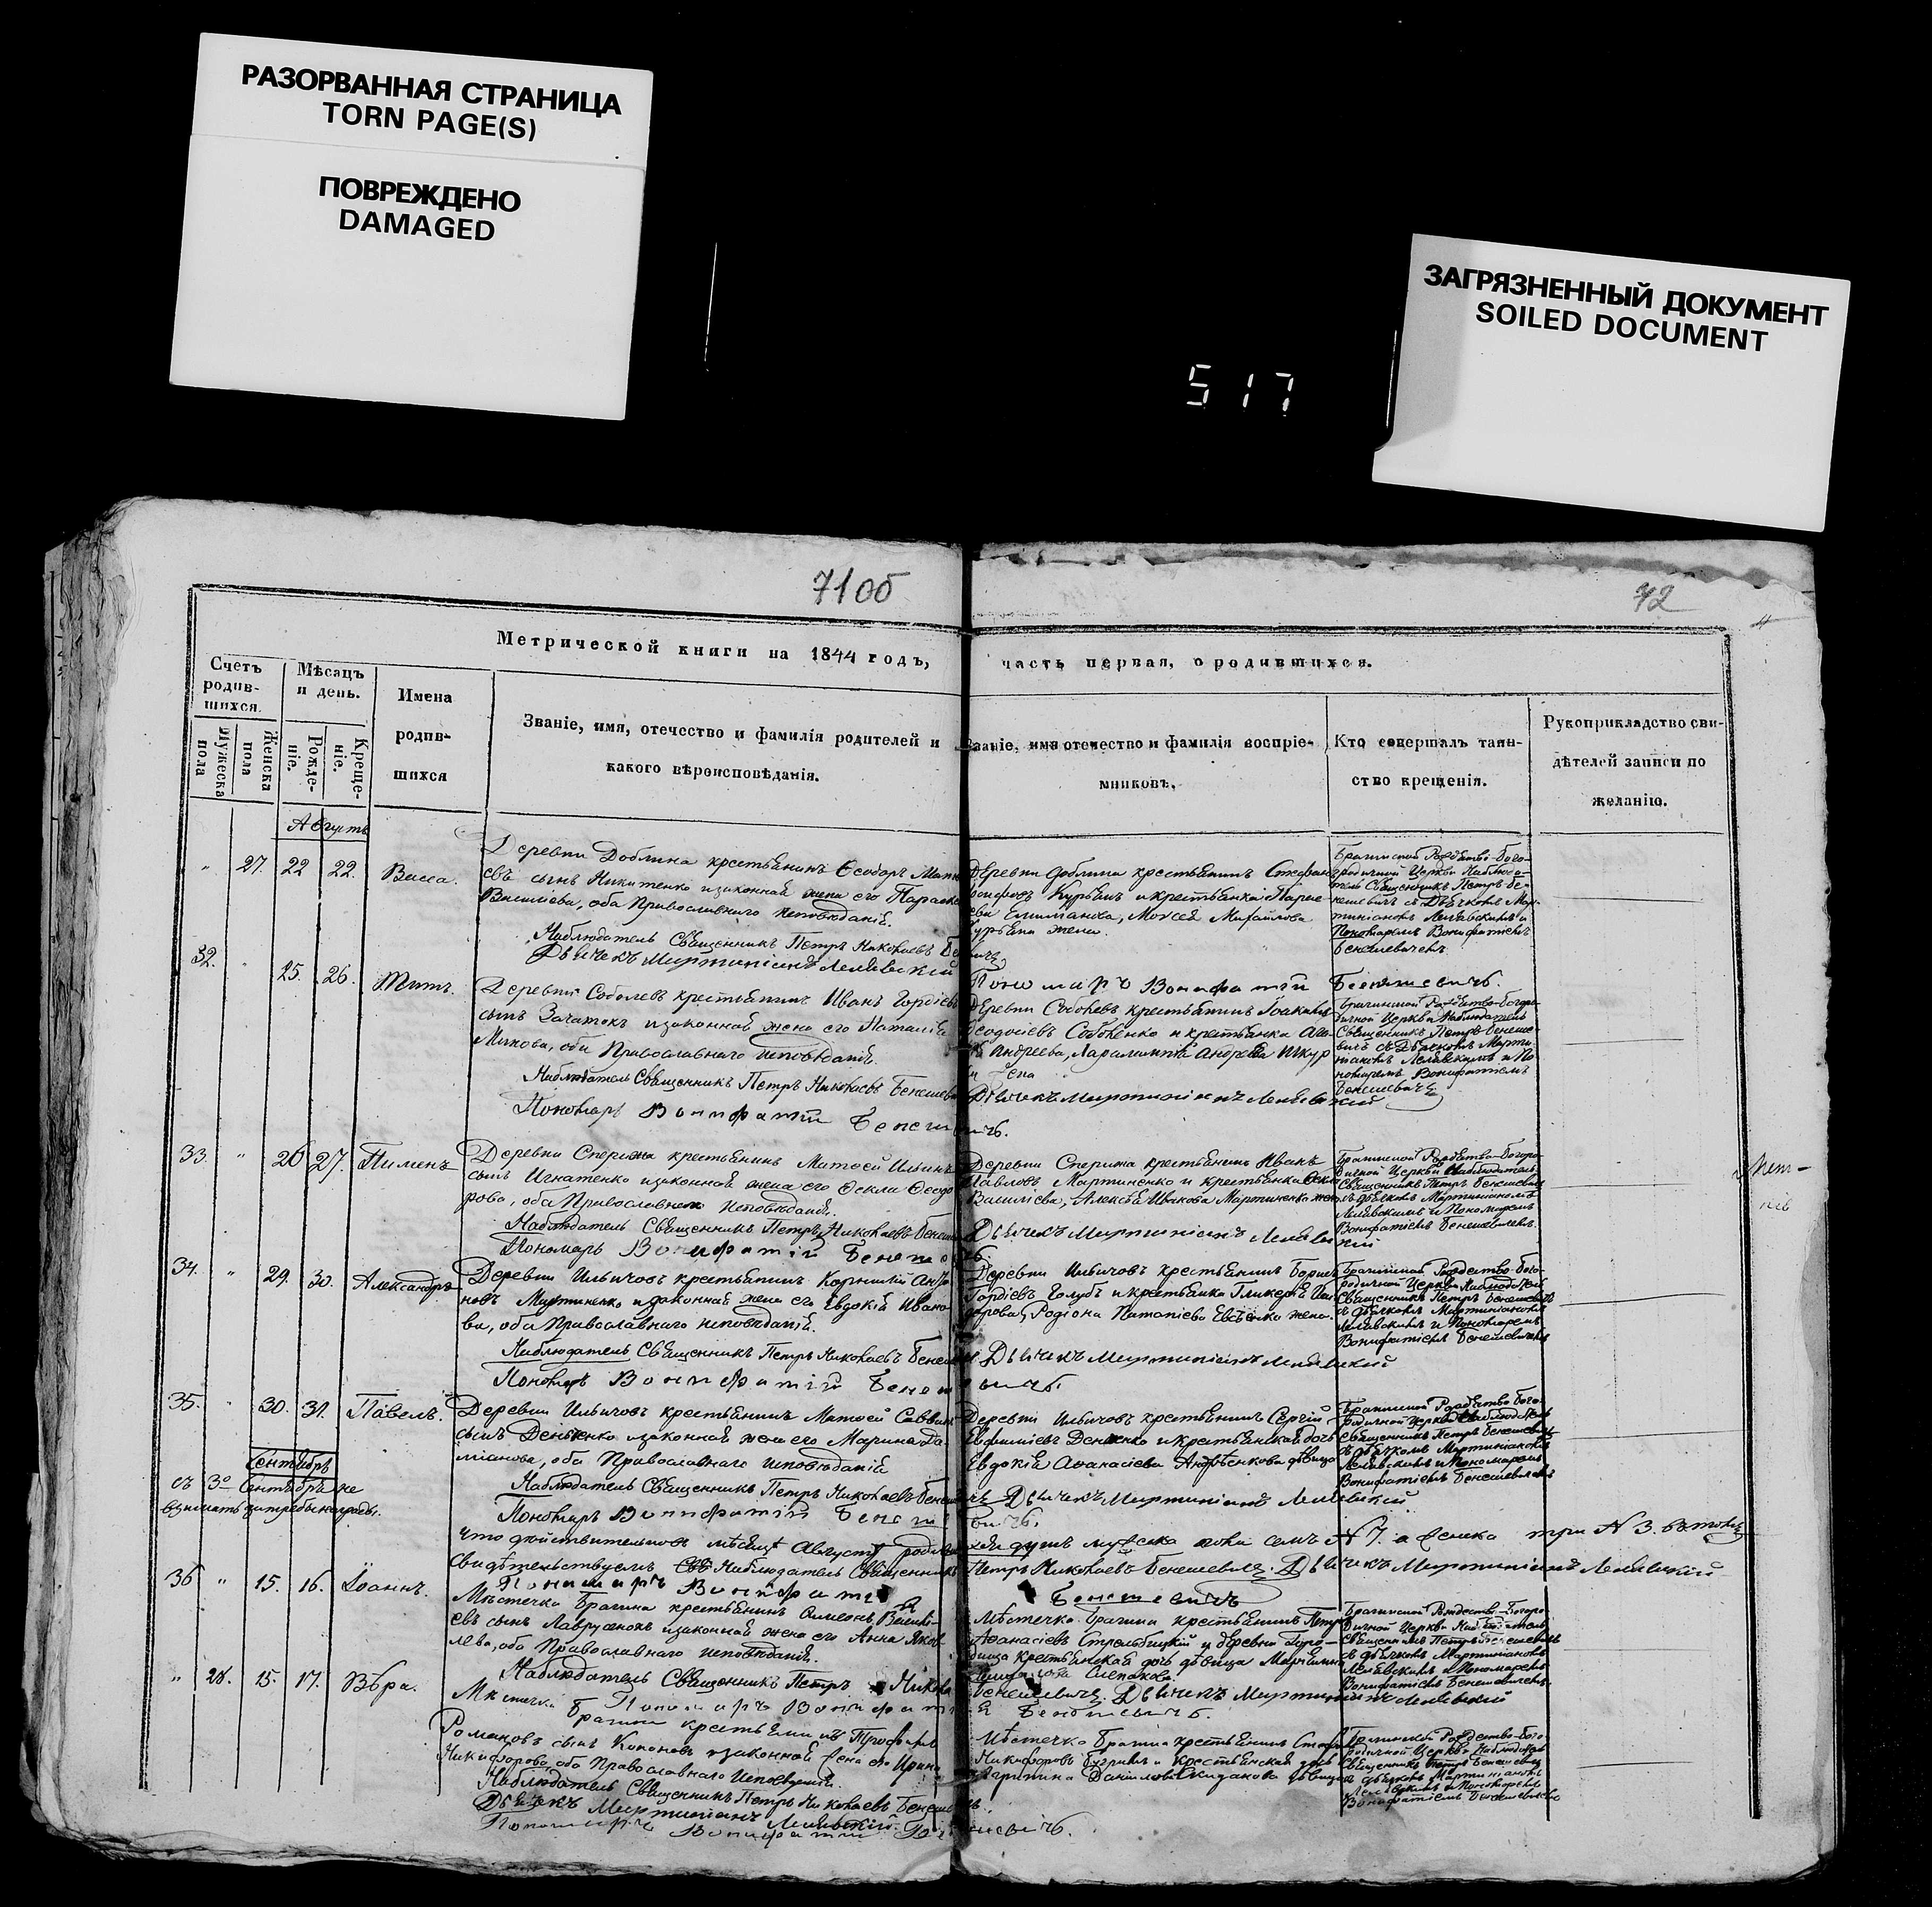 РАЗОРВАННАЯ СТРАНИЦА
TORN PAGE(S)
ПОВРЕЖДЕНО
DAMAGED
ЗАГРЯЗНЕННЫЙ ДОКУМЕНТ
SOILED DOCUMENT
517
71об
72
Метрической книги на 1844 годъ, часть первая, о родившихся.
Счетъ родив-шихся.
Мужеска пола
Женска пола
Мѣсяцъ и день.
Рожде-ніе.
Креще-ніе.
Имена родив-шихся
Званіе, имя, отечество и фамилія родителей и
какого вѣроисповѣданія.
Званіе, имя отечество и фамилія воспріе-
мниковъ.
Кто совершалъ таин-
ство крещенія.
Рукоприкладство сви-
дѣтелей записи по
желанію.
Августъ
" 27. 22 22. Васса.
Деревни Доблина крестьянинъ Ѳеодоръ
евъ сынъ Никитенко и законная жена его
Васильева, оба Православнаго исповѣданія.
Наблюдатель Священникъ Петръ Николаевъ
Дьячекъ Мартиніанъ Лелявский
Деревни Доблина крестьянинъ Стефанъ
Курьянъ и крестьянка
Моисея Михайлова
Курьяна жена.
Пономаръ Вонифатий Бенешевичъ.
Брагинской Рождество-Бого-
родичной Церкви Наблюда-
тель Священникъ Петръ Бе-
нешевичъ съ Дьячкомъ Мар-
тиніаномъ Лелявскимъ и
Пономаремъ Вонифатіемъ
Бенешевичемъ
32. " 25. 26. Титъ.
Деревни Соболевъ крестьянинъ Иванъ Гордіевъ
сынъ Зачатокъ и законная жена его Наталія
оба Православнаго исповѣданія.
Наблюдатель Священникъ Петръ Николаевъ Бенешевичъ
Пономарь Вонифатій Бенешевичъ.
Деревни Соболевъ крестьянинъ Іоакимъ
Ѳеодосіевъ Соболенко и крестьянка
Андреева,
жена
Дьячекъ Мартиніанъ Лелявский
Брагинской Рождество-Богоро-
дичной Церкви Наблюдатель
Священникъ Петръ Бенеше-
вичъ съ Дьячкомъ Марти-
ніаномъ Лелявскимъ и По-
номаремъ Вонифатіемъ
Бенешевичемъ
33. " 26 27. Пименъ
Деревни Спериж крестьянинъ Матѳей Ильинъ
сынъ Игнатенко и законная жена его Ѳекла Ѳеодо
рова, оба Православнаго исповѣданія.
Наблюдатель Священникъ Петръ Николаевъ Бенешевичъ
Пономарь Вонифатій Бенешевичъ.
Деревни Спериж крестьянинъ Иванъ
Павловъ Мартиненко и крестьянка
Василіева, Алексѣя Иванова Мартиненка жена
Дьячекъ Мартиніанъ Лелявский
Брагинской Рождество-Богоро-
дичной Церкви Наблюдатель
Священникъ Петръ Бенешевичъ
съ дьячкомъ Мартиніаномъ
Лелявскимъ и Пономаремъ
Вонифатіемъ Бенешевичемъ.
34. " 29. 30. Александръ
Деревни Ильичовъ крестьянинъ Корнилій
новъ Мартиненко и законная жена его Евдокія Ивано-
ва, оба Православнаго исповѣданія.
Наблюдатель Священникъ Петръ Николаевъ Бенешевичъ
Пономарь Вонифатій Бенешевичъ.
Деревни Ильичовъ крестьянинъ Борисъ
Гордіевъ Голубъ и крестьянка Гликерія
Родіона Евсѣенко жена.
Дьячекъ Мартиніанъ Лелявский
Брагинской Рождество-Бого-
родичной Церкви Наблюдатель
Священникъ Петръ Бенешевичъ
съ дьячкомъ Мартиніаномъ
Лелявскимъ и Пономаремъ
Вонифатіемъ Бенешевичемъ
35. " 30. 31. Павелъ.
Деревни Ильичовъ крестьянинъ Матѳей Саввинъ
сынъ и законная жена его Марина Да-
міанова, оба Православнаго исповѣданія
Наблюдатель Священникъ Петръ Николаевъ Бенешевичъ
Пономарь Вонифатій Бенешевичъ.
Деревни Ильичовъ крестьянинъ Сергій
Евфиміевъ и крестьянская дочь
Евдокія Аѳанасіева дѣвица
Дьячекъ Мартиніанъ Лелявский
Брагинской Рождество-Бого-
родичной Церкви Наблюдатель
Священникъ Петръ Бенешевичъ
съ дьячкомъ Мартиніаномъ
Лелявскимъ и Пономаремъ
Вонифатіемъ Бенешевичемъ
Сентябрь
съ 3о Сентября не
взимать за требы награды.
что дѣйствительно въ мѣсяцѣ Августѣ душъ мужеска пола семь № 7. а женска три № 3. въ томъ
свидѣтельствуемъ Наблюдатель Священникъ Петръ Николаевъ Бенешевичъ. Дьячекъ Мартиніанъ Лелявский
Пономаръ Вонифатій Бенешевичъ
36 " 15. 16. Іоаннъ.
Мѣстечка Брагина крестьянинъ Симеонъ Василі-
евъ сынъ Лавруженокъ и законная жена его Анна Яков-
лева, оба Православнаго исповѣданія.
Наблюдатель Священникъ Петръ Николаевъ Бенешевичъ. Дьячекъ Мартиніанъ Лелявский
Пономаръ Вонифатій Бенешевичъ.
Мѣстечка Брагина крестьянинъ Петръ
Аѳанасіевъ Стрельбицкій и деревни
крестьянская дочь дѣвица
Брагинской Рождество-Богоро-
дичной Церкви Наблюдатель
Священникъ Петръ Бенешевичъ
съ дьячкомъ Мартиніаномъ
Лелявскимъ и Пономаремъ
Вонифатіемъ Бенешевичемъ.
" 28. 15. 17. Вѣра.
Мѣстечка Брагина крестьянинъ Трофимъ
Романовъ сынъ и законная жена его Ирина
Никифорова оба Православнаго исповѣданія.
Наблюдатель Священникъ Петръ Николаевъ Бенешевичъ.
Дьячекъ Мартиніанъ Лелявский.
Пономаръ Вонифатий Бенешевичъ.
Мѣстечка Брагина крестьянинъ
Никифоровъ и крестьянская дочь
Агрипина Данилова дѣвица
Брагинской Рождество-Бого-
родичной Церкви Наблюдатель
Священникъ Петръ Бенешевичъ
съ дьячкомъ Мартиніаномъ
Лелявскимъ и Пономаремъ
Вонифатіемъ Бенешевичемъ